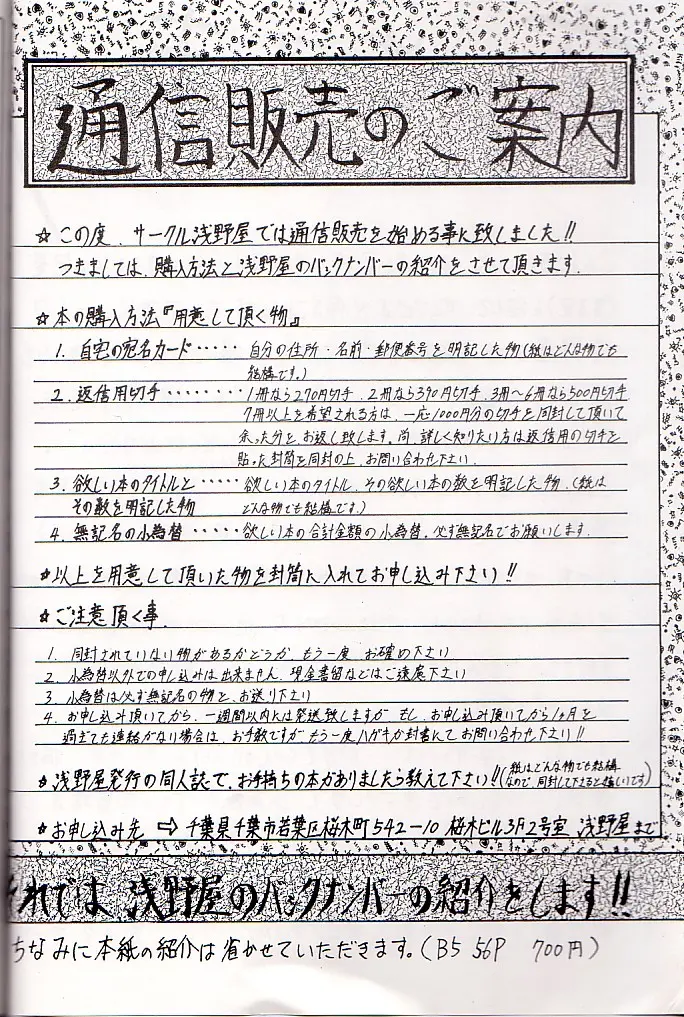 通信販売のご案内
☆この度、サークル浅野屋では通信販売を始める事に致しました!!
つきましては、購入方法と浅野屋のバックナンバーの紹介をさせて頂きます。
☆本の購入方法『用意して頂く物』
1. 自宅の宛名カード・・・・・自分の住所・名前・郵便番号を明記した物(紙はどんな物でも
結構です。)
2. 返信用切手・・・・・・・・1冊なら270円切手、2冊なら390円切手、3冊～6冊なら500円切手
7冊以上を希望される方は、一応1000円分の切手を同封して頂いて
余った分を、お返し致します。尚、詳しく知りたい方は返信用の切手を
貼った封筒を同封の上、お問い合わせ下さい。
3. 欲しい本のタイトルと・・・・・欲しい本のタイトル、その欲しい本の数を明記した物。(紙は
その数を明記した物 どんな物でも結構です。)
4. 無記名の小為替・・・・・欲しい本の合計金額の小為替。必ず無記名でお願いします。
☆以上を用意して頂いた物を封筒に入れてお申し込み下さい!!
☆ご注意頂く事。
1. 同封されていない物があるかどうか、もう一度、お確め下さい
2. 小為替以外での申し込みは出来ません。現金書留などはご遠慮下さい
3. 小為替は必ず無記名の物を、お送り下さい
4. お申し込み頂いてから、一週間以内には発送致しますが、もし、お申し込み頂いてから1ヶ月を
過ぎても連絡がない場合は、お手数ですが、もう一度ハガキか封書にて、お問い合わせ下さい!!
☆浅野屋発行の同人誌で、お手持ちの本がありましたら教えて下さい!!(紙はどんな物でも結構
なので、同封して下さると嬉しいです)
☆お申し込み先 ⇨ 千葉県千葉市若葉区桜木町542-10 桜木ビル3F2号室 浅野屋まで
それでは、浅野屋のバックナンバーの紹介をします!!
ちなみに本紙の紹介は省かせていただきます。(B5 56P 700円)